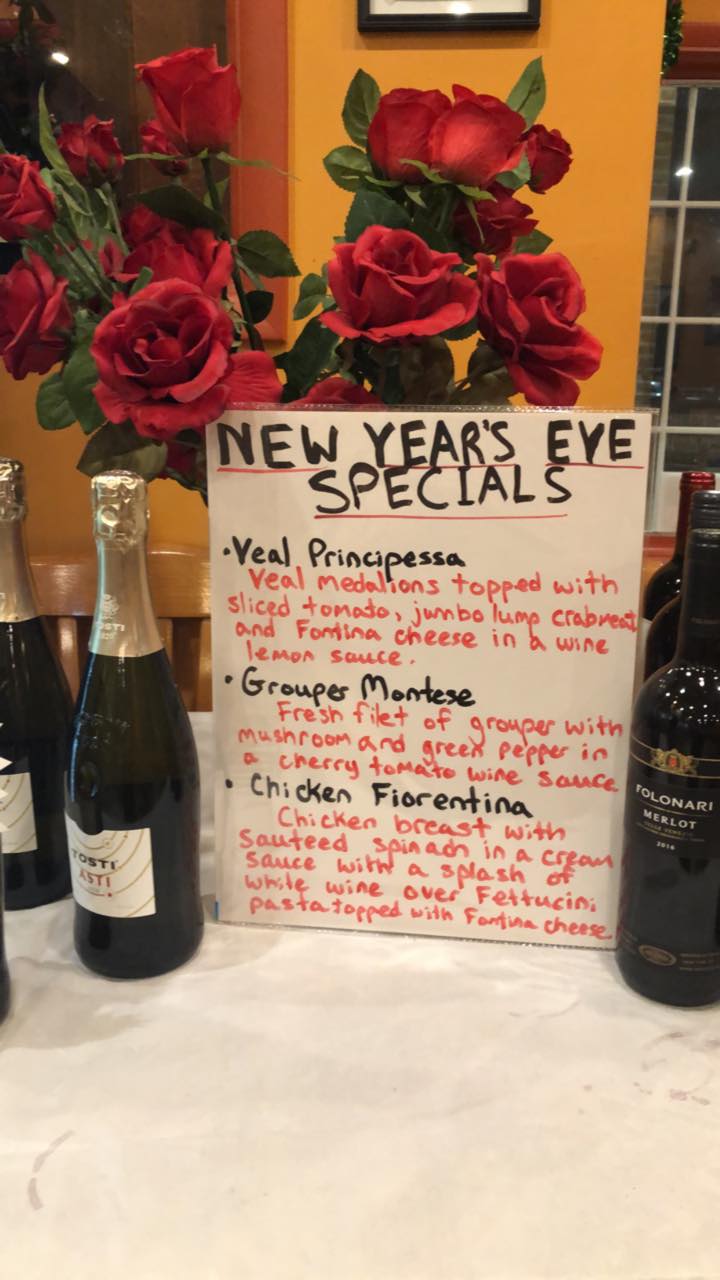 NEW YEAR'S EVE
SPECIALS
•Veal Principessa
Veal medalions topped with
sliced tomato, jumbo lump crabmeat
and Fontina cheese in a wine
lemon sauce.
• Grouper Montese
Fresh filet of grouper with
mushroom and green pepper in
a cherry tomato wine sauce
• Chicken Fiorentina
Chicken breast with
Sauteed spinach in a cream
sauce with a splash of
white wine over Fettucini
pasta topped with Fontina cheese.
TOSTI
ASTI
FOLONARI
MERLOT
2016